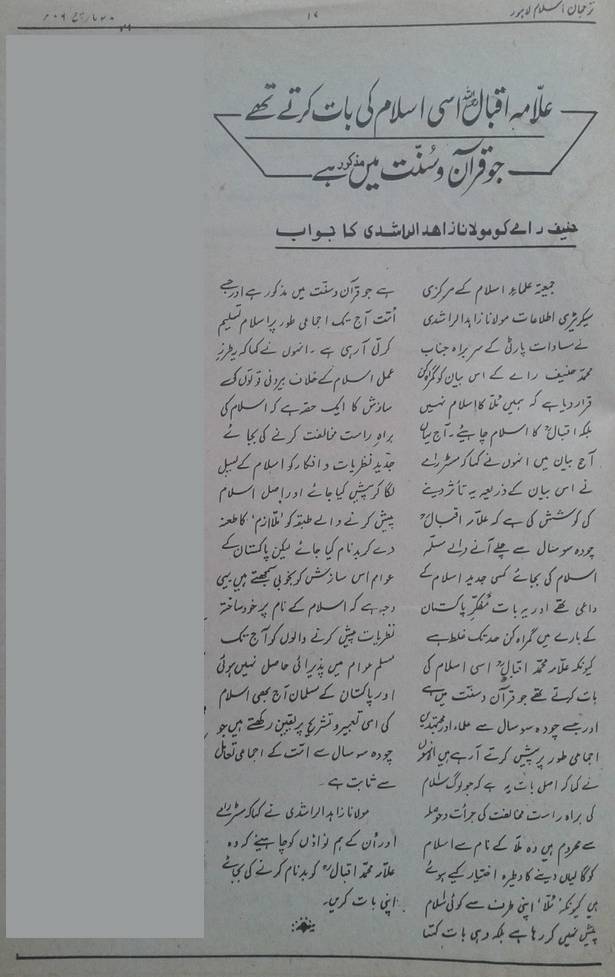 ترجمان اسلام لاہور
۱۷
علامہ اقبالؒ اسی اسلام کی بات کرتے تھے
جو قرآن و سُنّت میں مذکور ہے
حنیف رامے کو مولانا زاھد الراشدی کا جواب
جمعیۃ علماء اسلام کے مرکزی
سیکریٹری اطلاعات مولانا زاہد الراشدی
نے مساوات پارٹی کے سربراہ جناب
محمد حنیف رامے کے اس بیان کو گمراہ کن
قرار دیا ہے کہ ہمیں مُلّا کا اسلام نہیں
بلکہ اقبالؒ کا اسلام چاہئے۔ آج یہاں
آج بیان میں انہوں نے کہا کہ مسٹر رامے
نے اس بیان کے ذریعہ یہ تأثر دینے
کی کوشش کی ہے کہ علامہ اقبالؒ
چودہ سو سال سے چلے آنے والے مسلّمہ
اسلام کی بجائے کسی جدید اسلام کے
داعی تھے اور یہ بات مفکرِ پاکستان
کے بارے میں گمراہ کن حد تک غلط ہے
کیونکہ علامہ محمد اقبالؒ اسی اسلام کی
بات کرتے تھے جو قرآن و سنّت میں ہے
اور جسے چودہ سو سال سے علماء اور مجتہدین
اجماعی طور پر پیش کرتے آ رہے ہیں انہوں
نے کہا کہ اصل بات یہ ہے کہ جو لوگ اسلام
کی براہ راست مخالفت کی جرأت و حوصلہ
سے محروم ہیں وہ ملّا کے نام سے اسلام
کو گالیاں دینے کا وطیرہ اختیار کیے ہوئے
ہیں کیونکہ 'مُلّا' اپنی طرف سے کوئی اسلام
پیش نہیں کر رہا ہے بلکہ وہی بات کہتا
ہے جو قرآن و سنّت میں مذکور ہے اور جسے
اُمّت آج تک اجماعی طور پر اسلام تسلیم
کرتی آ رہی ہے۔ انہوں نے کہا کہ یہ طرزِ
عمل اسلام کے خلاف بیرونی قوتوں کی
سازش کا ایک حصہ ہے کہ اسلام کی
براہِ راست مخالفت کرنے کی بجائے
جدید نظریات و افکار کو اسلام کے لیبل
لگا کر پیش کیا جائے اور اصل اسلام
پیش کرنے والے طبقہ کو 'ملّاازم' کا طعنہ
دے کر بدنام کیا جائے لیکن پاکستان کے
عوام اس سازش کو بخوبی سمجھتے ہیں یہی
وجہ ہے کہ اسلام کے نام پر خود ساختہ
نظریات پیش کرنے والوں کو آج تک
مسلم عوام میں پذیرائی حاصل نہیں ہوئی
اور پاکستان کے مسلمان آج بھی اسلام
کی اسی تعبیر و تشریح پر یقین رکھتے ہیں جو
چودہ سو سال سے امّت کے اجماعی تعامل
سے ثابت ہے۔
مولانا زاہد الراشدی نے کہا کہ مسٹر رامے
اور اُن کے ہم نواؤں کو چاہیئے کہ وہ
علامہ محمد اقبالؒ کو بدنام کرنے کی بجائے
اپنی بات کریں۔